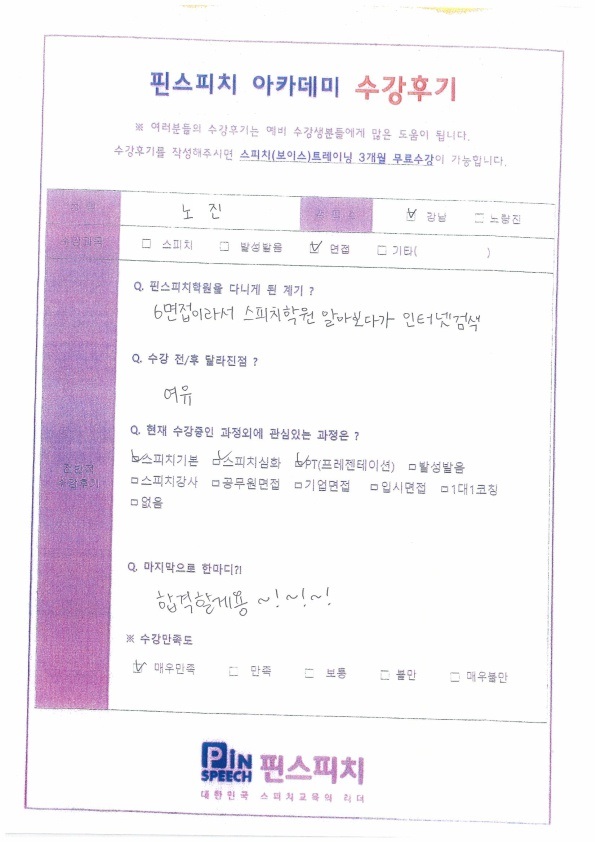 핀스피치 아카데미 수강후기
※ 여러분들의 수강후기는 예비 수강생분들에게 많은 도움이 됩니다.
수강후기를 작성해주시면 스피치(보이스)트레이닝 3개월 무료수강이 가능합니다.
노 진 ☑ 강남 □ 노량진
□ 스피치 □ 발성발음 ☑ 면접 □ 기타( )
Q. 핀스피치학원을 다니게 된 계기 ?
6면접이라서 스피치학원 알아보다가 인터넷검색
Q. 수강 전/후 달라진점 ?
여유
Q. 현재 수강중인 과정외에 관심있는 과정은 ?
☑스피치기본 ☑스피치심화 ☑PT(프레젠테이션) □발성발음
□스피치강사 □공무원면접 □기업면접 □입시면접 □1대1코칭
□없음
수강후기
Q. 마지막으로 한마디?!
합격할게용 ~!~!~!
※ 수강만족도
☑ 매우만족 □ 만족 □ 보통 □ 불만 □ 매우불만
PIN SPEECH 핀스피치
대한민국 스피치교육의 리더